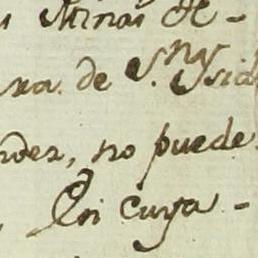 Minas de-
ra. de S.ⁿ Ysid
rdez, no puede
En cuya -